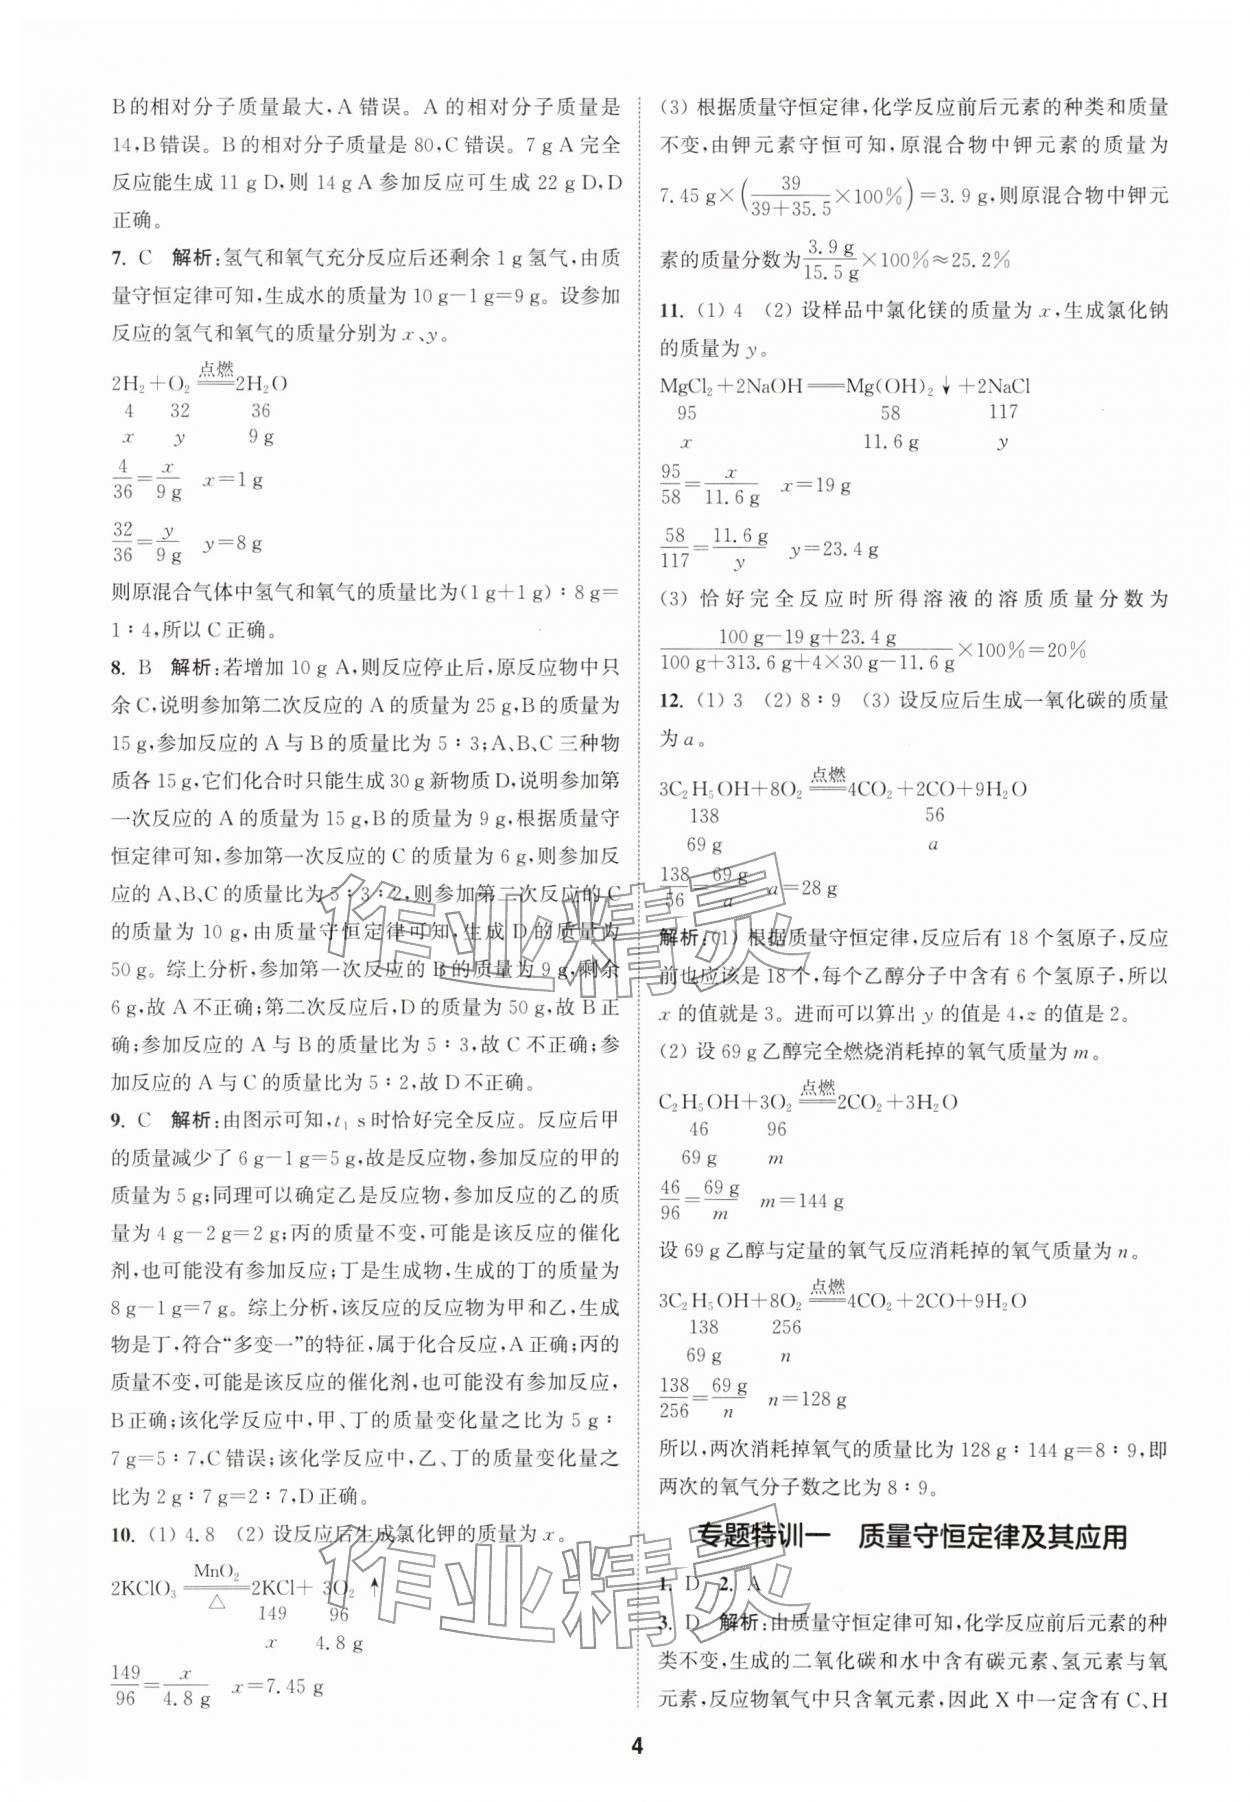 B的相对分子质量最大,A错误。A的相对分子质量是
14,B错误。B的相对分子质量是80,C错误。7 g A完全
反应能生成11 g D,则14 g A参加反应可生成22 g D,D
正确。
7. C 解析:氢气和氧气充分反应后还剩余1 g氢气,由质
量守恒定律可知,生成水的质量为10 g-1 g=9 g。设参加
反应的氢气和氧气的质量分别为x、y。
2H₂+O₂ 点燃═ 2H₂O
4 32 36
x y 9 g
4/36=x/9 g x=1 g
32/36=y/9 g y=8 g
则原混合气体中氢气和氧气的质量比为(1 g+1 g)∶8 g=
1∶4,所以C正确。
8. B 解析:若增加10 g A,则反应停止后,原反应物中只
余C,说明参加第二次反应的A的质量为25 g,B的质量为
15 g,参加反应的A与B的质量比为5∶3;A、B、C三种物
质各15 g,它们化合时只能生成30 g新物质D,说明参加第
一次反应的A的质量为15 g,B的质量为9 g,根据质量守
恒定律可知,参加第一次反应的C的质量为6 g,则参加反
应的A、B、C的质量比为5∶3∶2,则参加第二次反应的C
的质量为10 g,由质量守恒定律可知,生成D的质量为
50 g。综上分析,第一次反应的B的质量为9 g,剩余
6 g,故A不正确;第二次反应后,D的质量为50 g,故B正
确;参加反应的A与B的质量比为5∶3,故C不正确;参
加反应的A与C的质量比为5∶2,故D不正确。
9. C 解析:由图示可知,t₁ s时恰好完全反应。反应后甲
的质量减少了6 g-1 g=5 g,故是反应物,参加反应的甲的
质量为5 g;同理可以确定乙是反应物,参加反应的乙的质
量为4 g-2 g=2 g;丙的质量不变,可能是该反应的催化
剂,也可能没有参加反应;丁是生成物,生成的丁的质量为
8 g-1 g=7 g。综上分析,该反应的反应物为甲和乙,生成
物是丁,符合“多变一”的特征,属于化合反应,A正确;丙的
质量不变,可能是该反应的催化剂,也可能没有参加反应,
B正确;该化学反应中,甲、丁的质量变化量之比为5 g∶
7 g=5∶7,C错误;该化学反应中,乙、丁的质量变化量之
比为2 g∶7 g=2∶7,D正确。
10. (1) 4.8 (2) 设反应后生成氯化钾的质量为x。
2KClO₃ MnO₂═△ 2KCl+3O₂↑
149 96
x 4.8 g
149/96=x/4.8 g x=7.45 g
(3) 根据质量守恒定律,化学反应前后元素的种类和质量
不变,由钾元素守恒可知,原混合物中钾元素的质量为
7.45 g×(39/39+35.5×100%)=3.9 g,则原混合物中钾元
素的质量分数为3.9 g/15.5 g×100%≈25.2%
11. (1) 4 (2) 设样品中氯化镁的质量为x,生成氯化钠
的质量为y。
MgCl₂+2NaOH═Mg(OH)₂↓+2NaCl
95 58 117
x 11.6 g y
95/58=x/11.6 g x=19 g
58/117=11.6 g/y y=23.4 g
(3) 恰好完全反应时所得溶液的溶质质量分数为
100 g-19 g+23.4 g/100 g+313.6 g+4×30 g-11.6 g×100%=20%
12. (1) 3 (2) 8∶9 (3) 设反应后生成一氧化碳的质量
为a。
3C₂H₅OH+8O₂ 点燃═ 4CO₂+2CO+9H₂O
138 56
69 g a
138/56=69 g/a a=28 g
解析:(1) 根据质量守恒定律,反应后有18个氢原子,反应
前也应该是18个,每个乙醇分子中含有6个氢原子,所以
x的值就是3。进而可以算出y的值是4,z的值是2。
(2) 设69 g乙醇完全燃烧消耗掉的氧气质量为m。
C₂H₅OH+3O₂ 点燃═ 2CO₂+3H₂O
46 96
69 g m
46/96=69 g/m m=144 g
设69 g乙醇与定量的氧气反应消耗掉的氧气质量为n。
3C₂H₅OH+8O₂ 点燃═ 4CO₂+2CO+9H₂O
138 256
69 g n
138/256=69 g/n n=128 g
所以,两次消耗掉氧气的质量比为128 g∶144 g=8∶9,即
两次的氧气分子数之比为8∶9。
专题特训一 质量守恒定律及其应用
1. D 2. A
3. D 解析:由质量守恒定律可知,化学反应前后元素的种
类不变,生成的二氧化碳和水中含有碳元素、氢元素与氧
元素,反应物氧气中只含氧元素,因此X中一定含有C、H
4
作业精灵
作业精灵